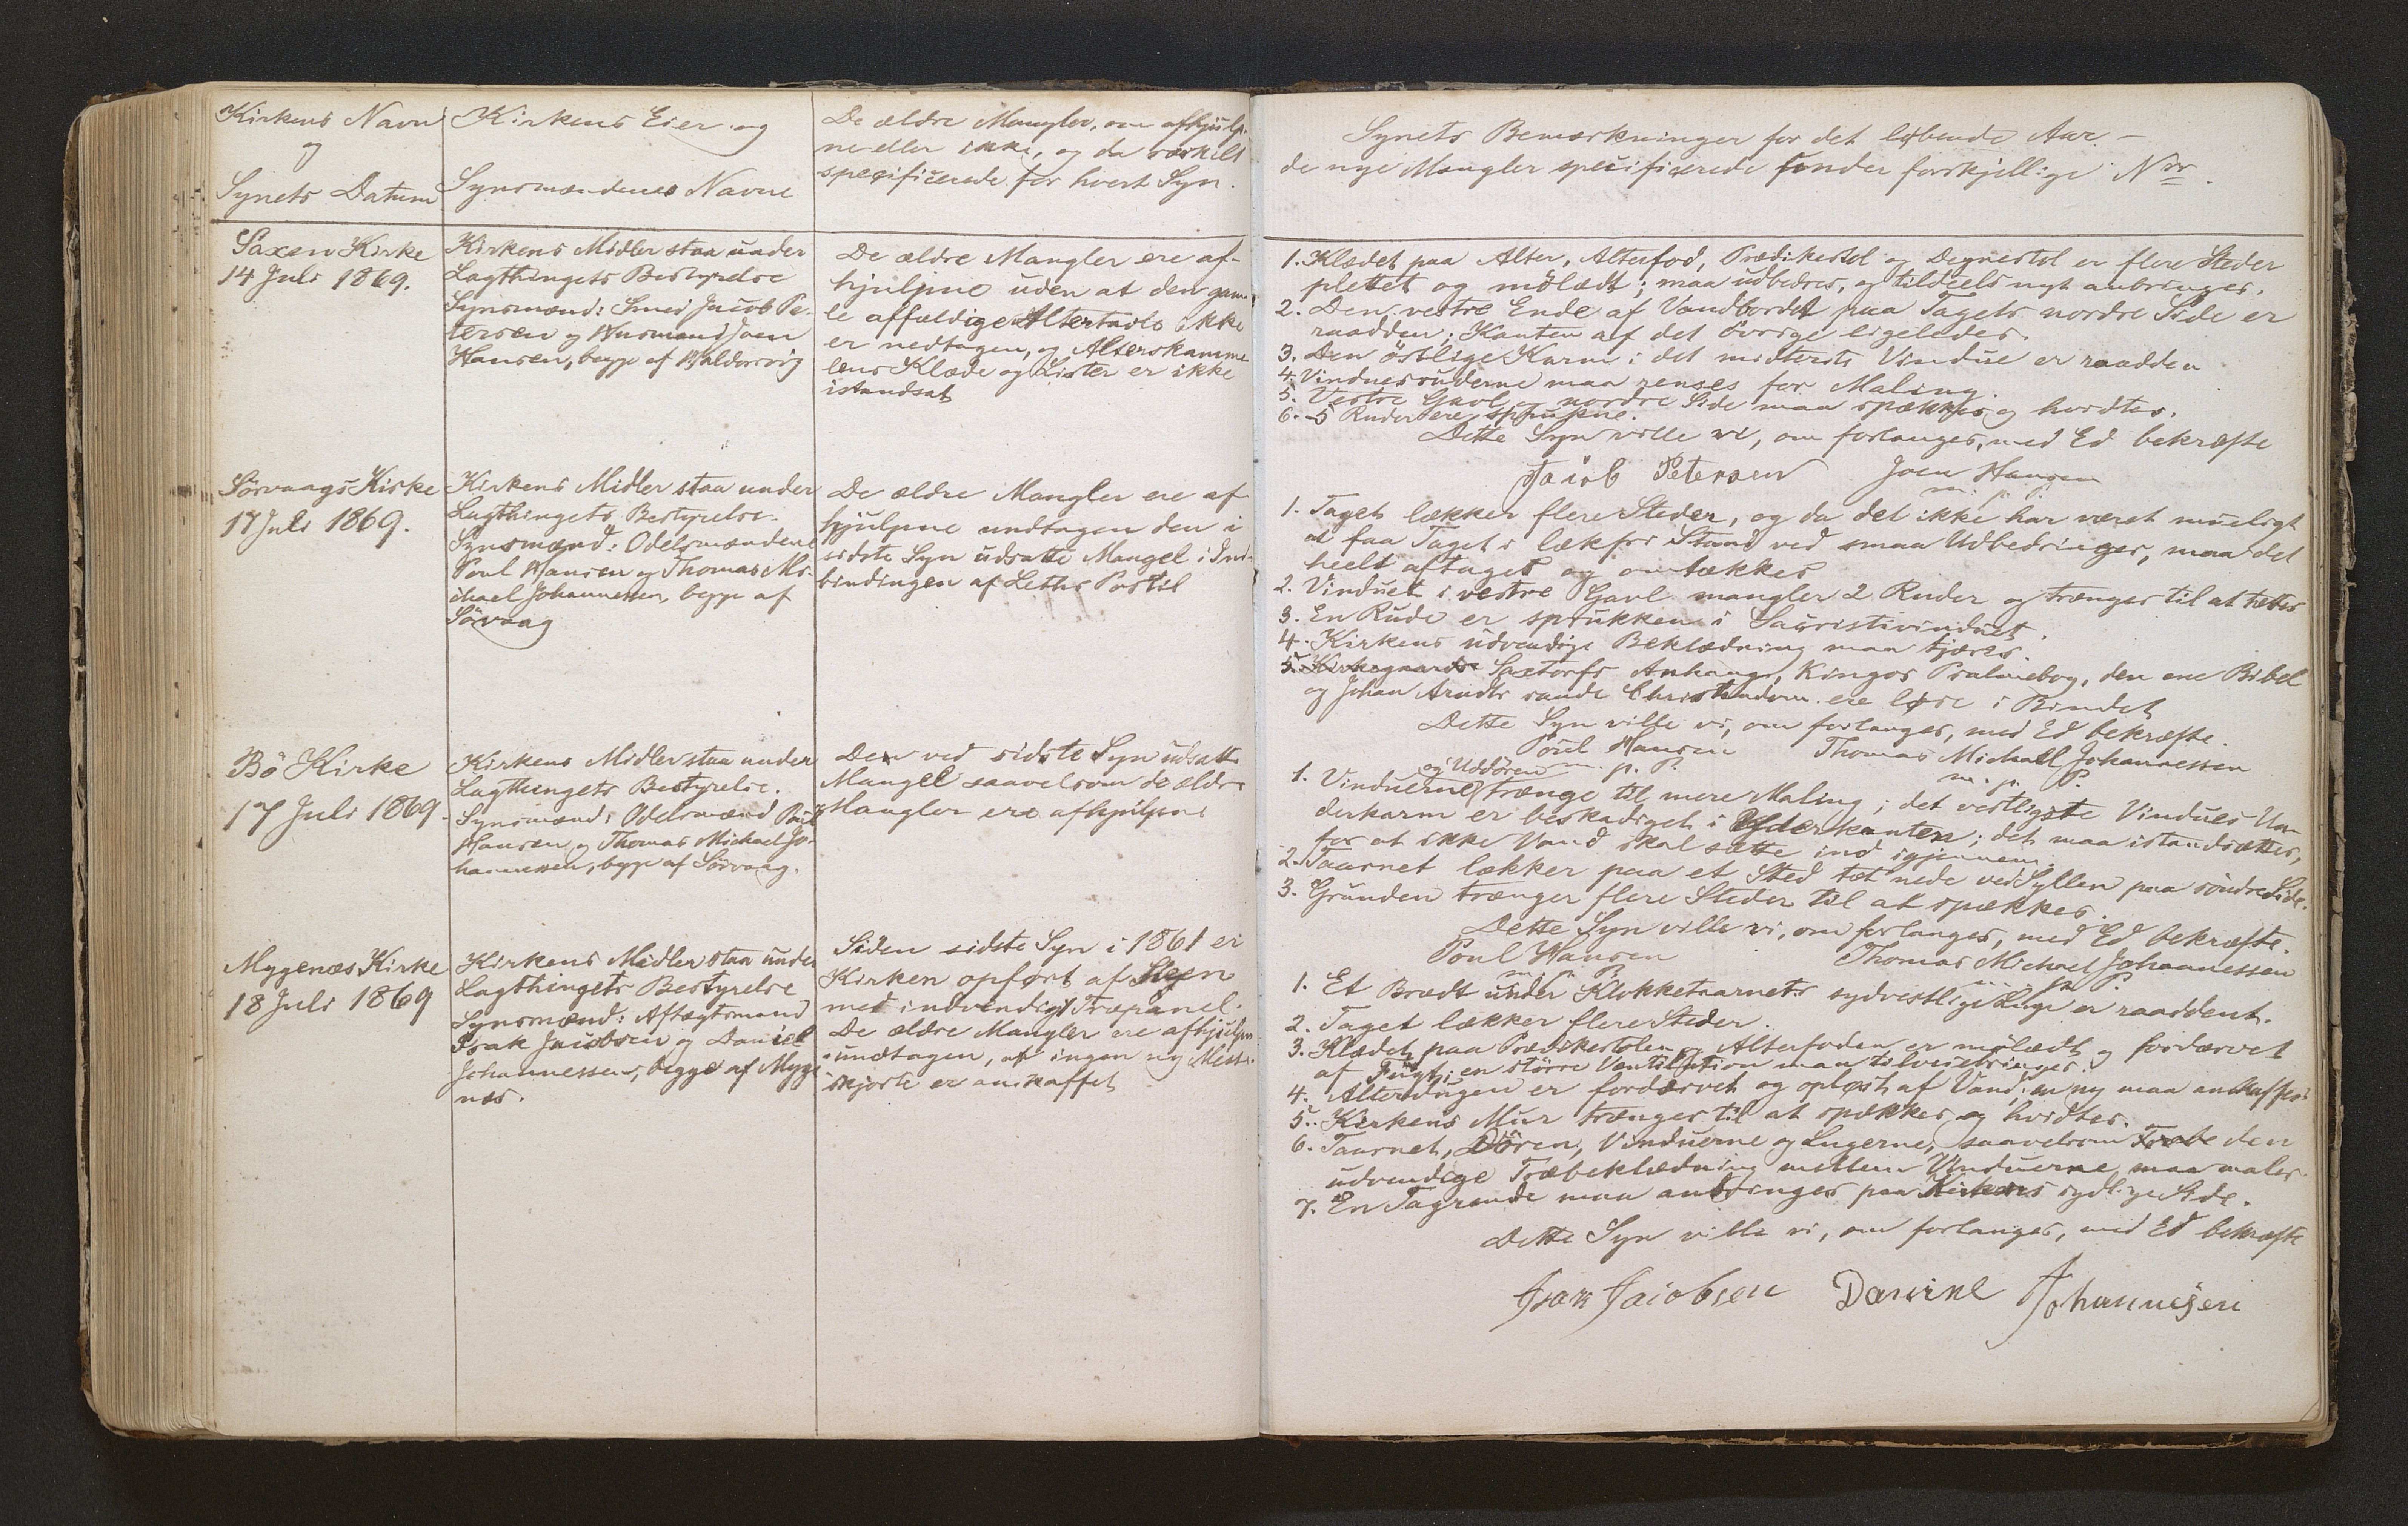 Kirkens Navn
og
Synets Datum
Kirkens Eier og
Synsmændenes Navne
De ældre Mangler, om afhjulp-
ne eller ikke, og da særskilt
specificerede for hvert Syn.
Saxen Kirke
14 Juli 1869.
Kirkens Midler staa under
Lagthingets Bestyrelse
Synsmænd: Smed Jacob Pe-
tersen og Huusmand Joen
Hansen, begge af
De ældre Mangler ere af-
hjulpne uden at den gam-
le affældige Altertavle ikke
er nedtagen, og Alterskamme-
lens Klæde og Lister er ikke
istandsat
Sörvaags Kirke
17 Juli 1869.
Kirkens Midler staa under
Lagthingets Bestyrelse.
Synsmænd: Odelsmændene
Poul Hansen og Thomas Mi-
chael Johannessen, begge af
Sörvaag
De ældre Mangler ere af
hjulpne undtagen den i
sidste Syn udsatte Mangel i Ind-
bindingen af Leths Postil
Bö Kirke
17 Juli 1869.
Kirkens Midler staa under
Lagthingets Bestyrelse.
Synsmænd: Odelsmænd Poul
Hansen og Thomas Michael Jo-
hannessen, begge af Sörvaag.
Den ved sidste Syn udsatte
Mangel saavelsom de ældre
Mangler ere afhjulpne
Myggenæs Kirke
18 Juli 1869
Kirkens Midler staa under
Lagthingets Bestyrelse
Synsmænd: Aftægtsmand
Isak Jacobsen og Daniel
Johannessen, begge af Mygge
næs.
Siden sidste Syn i 1861 er
Kirken opført af Steen
med indvendigt Træpanel.
De ældre Mangler ere afhjulpne
undtagen, at ingen ny Messe-
skjorte er anskaffet
Synets Bemærkninger for det løbende Aar. —
de nye Mangler specificerede under forskjellige Nrr.
1. Klædet paa Alter, Alterfod, Prædikestol og Degnestol er flere Steder
plettet og mölædt; maa udbedres, og tildeels nyt anbringes.
2. Den vestre Ende af Vandbordet paa Tagets nordre Side er
raadden; Kanten af det Övrige ligeledes.
3. Den östlige Karm i det midterste Vindue er raadden
4. Vinduesruderne maa renses for Maling.
5. Vestre Gavl og nordre Side maa spækkes og hvidtes.
6. 5 Ruder ere sprukne.
Dette Syn ville vi, om forlanges, med Ed bekræfte
Jacob Petersen Joen Hansen
m. p. P.
1. Taget lækker flere Steder, og da det ikke har været mueligt
at faa Taget i lækfri Stand ved smaa Udbedringer, maa det
heelt aftages og omtækkes
2. Vinduet i vestre Gavl mangler 2 Ruder og trænger til at tættes
3. En Rude er sprukken i Sacristivinduet.
4. Kirkens udvendige Beklædning maa tjæres.
5. Kirkegaards Saxtorfs Anhang, Kingos Psalmebog, den ene Bibel
og Johan Arndts sande Christendom ere løse i Bindet
Dette Syn ville vi, om forlanges, med Ed bekræfte.
Poul Hansen Thomas Michael Johannessen
m. p. P. m. p. P.
og Uddören
1. Vinduerne trænge til mere Maling; det vestligste Vindues Un-
derkarm er beskadiget i Yderkanten; det maa istandsættes,
for at ikke Vand skal sætte ind igjennem.
2. Taarnet lækker paa et Sted tæt nede ved Syllen paa söndre Side.
3. Grunden trænger flere Steder til at spækkes.
Dette Syn ville vi, om forlanges, med Ed bekræfte.
Poul Hansen Thomas Michael Johannessen
m. p. P. m. p. P.
1. Et Brædt under Klokketaarnets sydvestlige Luge er raaddent.
2. Taget lækker flere Steder.
3. Klædet paa Prædikestolen og Alterfoden er mölædt og fordærvet
af Fugt; en större Ventilation maa tilveiebringes.
4. Alterdugen er fordærvet og opløst af Vand; en ny maa anskaffes
5. Kirkens Mur trænger til at spækkes og hvidtes.
6. Taarnet, Dören, Vinduerne og Lugerne, saavelsom Træbe den
udvendige Træbeklædning mellem Vinduerne maa males.
7. En Tagrende maa anbringes paa Kirkens sydlige Side.
Dette Syn ville vi, om forlanges, med Ed bekræfte
Isak Jacobsen Daniel Johannesen